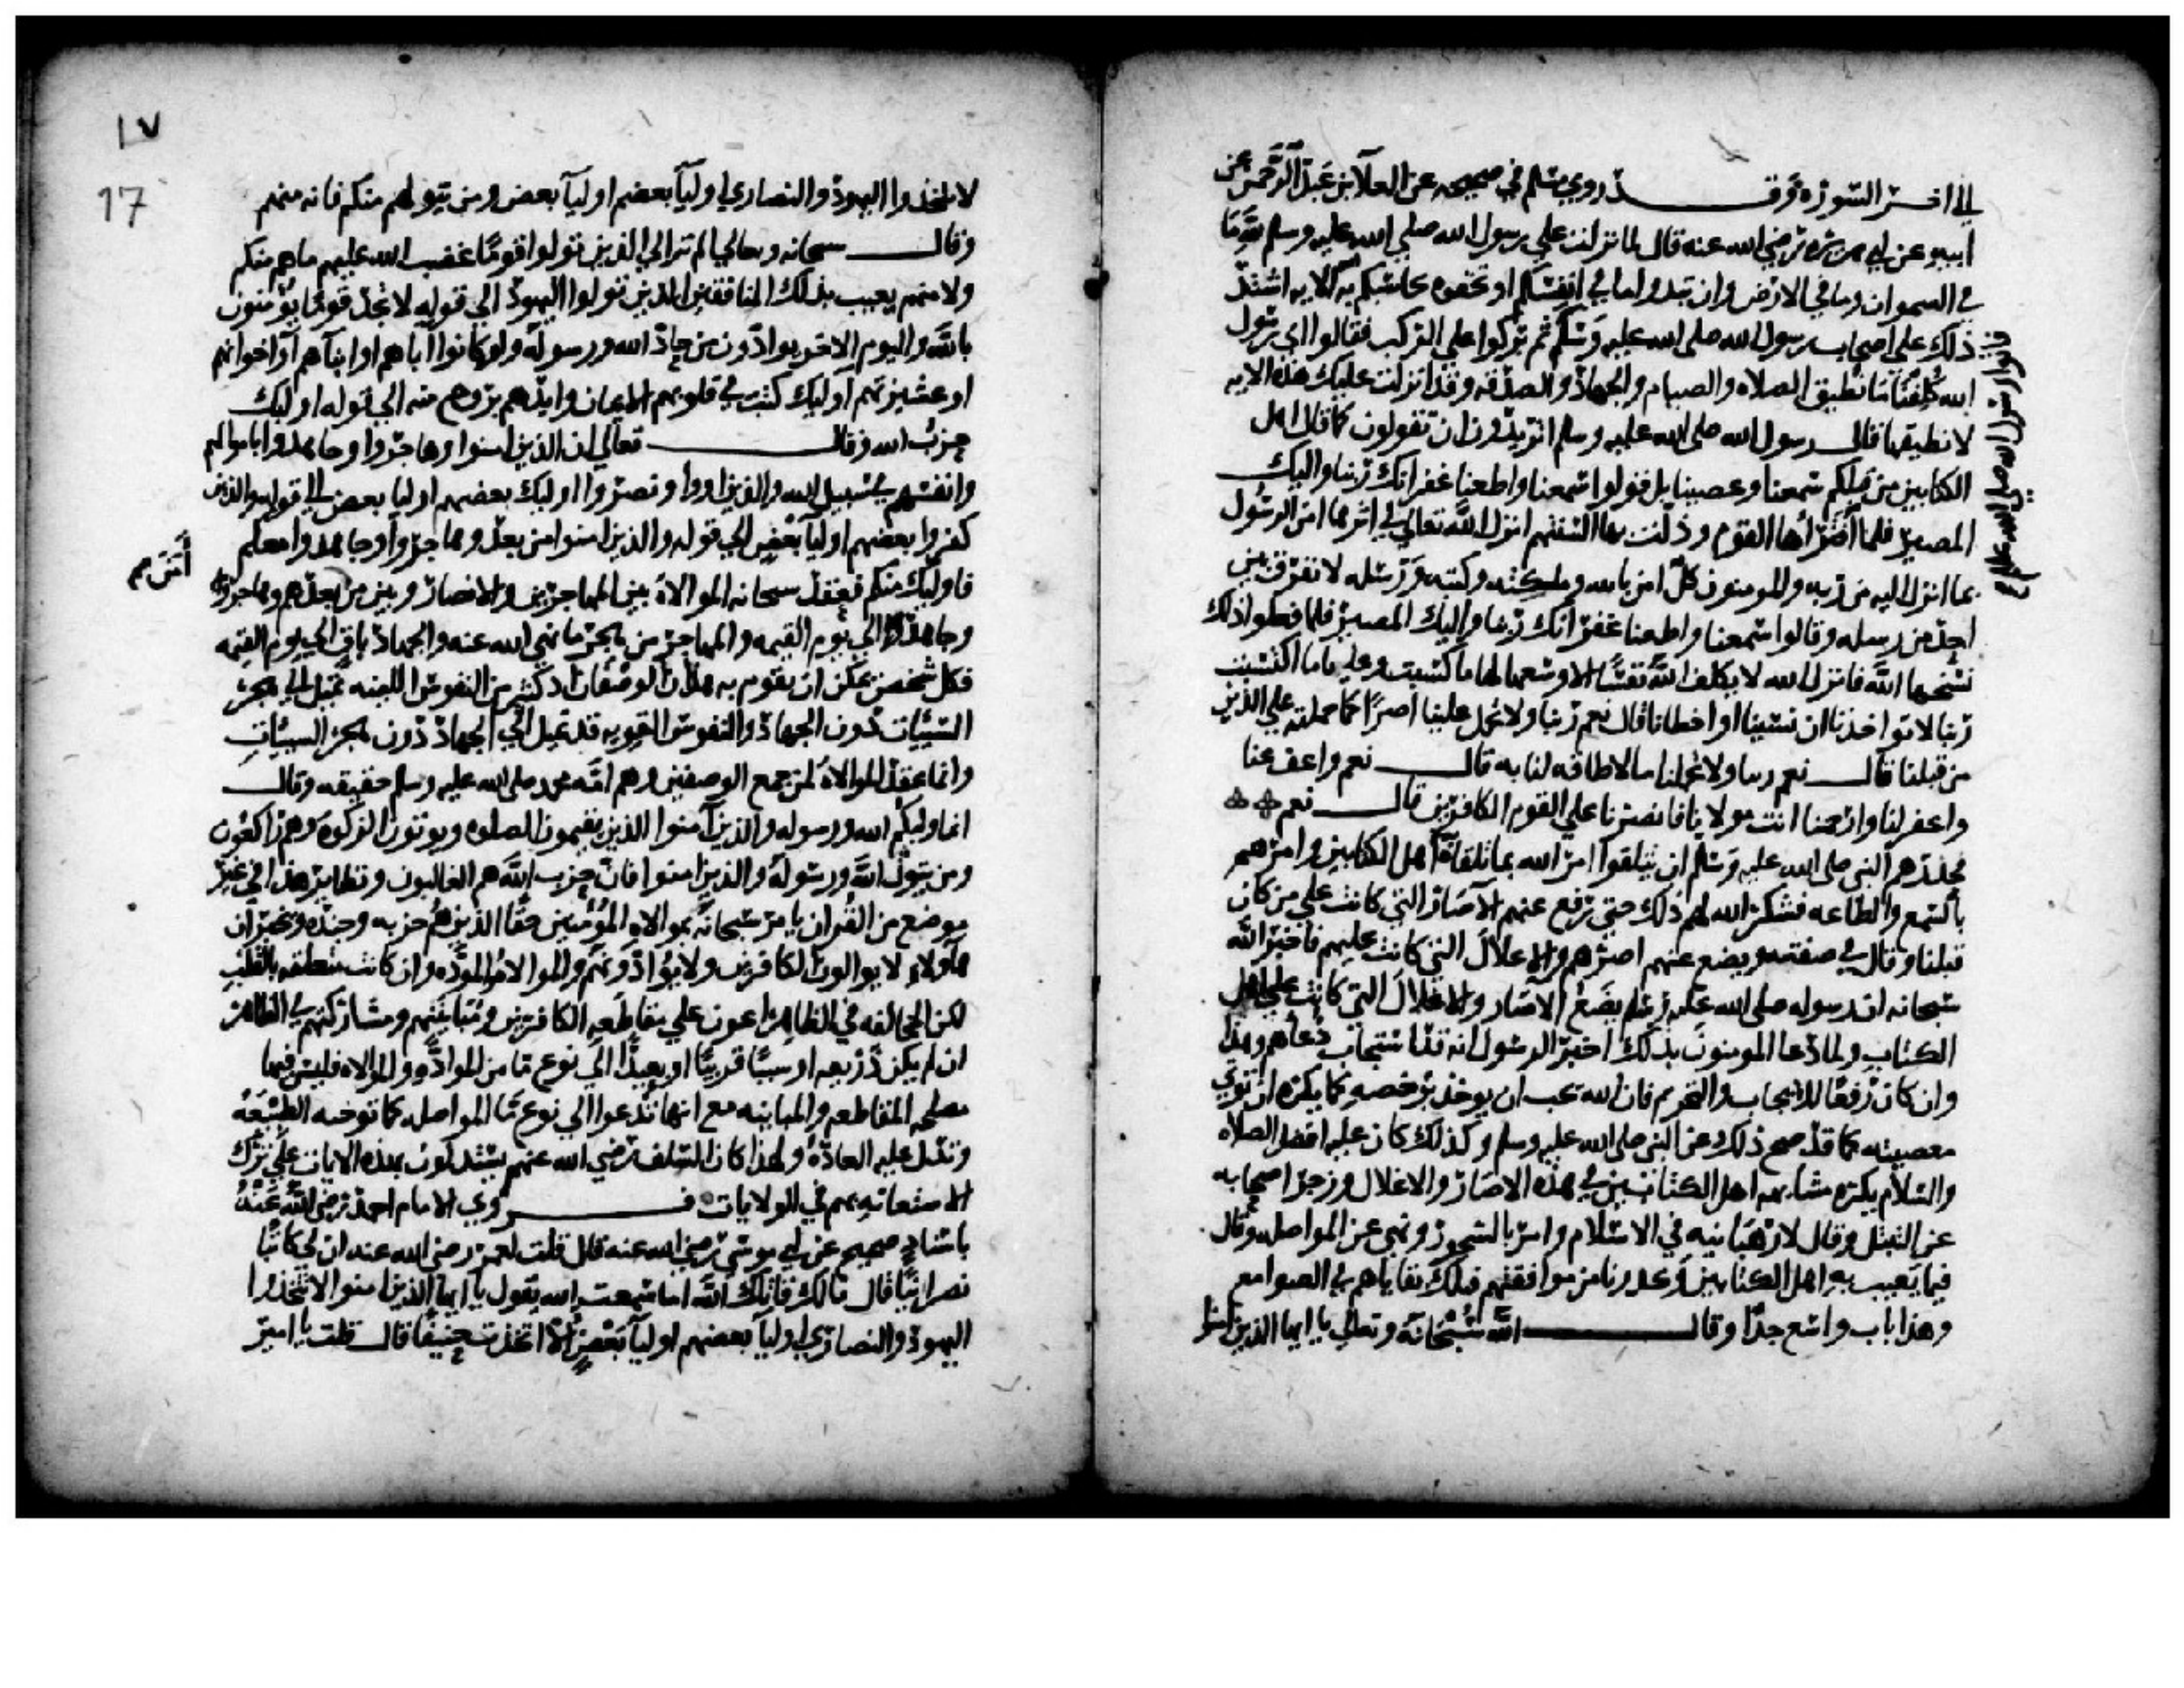 الي اخر السورة وقد روي مسلم في صحيحه عن العلا بن عبد الرحمن عن
ابيه عن ابي هريره رضي الله عنه قال لما نزلت علي رسول الله صلي الله عليه وسلم لله ما
في السموات وما في الارض وان تبدوا ما في انفسكم او تخفوه يحاسبكم به الله الايه اشتد
ذلك علي اصحاب رسول الله صلي الله عليه وسلم ثم بركوا علي الركب فقالوا اي رسول
الله كلفنا ما نطيق الصلاه والصيام والجهاد والصدقه وقد انزلت عليك هذه الايه
لا نطيقها قال رسول الله صلي الله عليه وسلم اتريدون ان تقولوا كما قال اهل
الكتابين من قبلكم سمعنا وعصينا بل قولوا سمعنا واطعنا غفرانك ربنا واليك
المصير فلما اقترأها القوم وذلت بها السنتهم انزل الله تعالي في اثرها امن الرسول
بما انزل اليه من ربه والمومنون كل امن بالله وملائكته وكتبه ورسله لا نفرق بين
احد من رسله وقالوا سمعنا واطعنا غفرانك ربنا واليك المصير فلما فعلوا ذلك
نسخها الله فانزل الله لا يكلف الله نفسا الا وسعها لها ما كسبت وعليها ما اكتسبت
ربنا لا تواخذنا ان نسينا او اخطانا قال نعم ربنا ولا تحمل علينا اصرا كما حملته علي الذين
من قبلنا قال نعم ربنا ولا تحملنا ما لا طاقه لنا به قال نعم واعف عنا
واغفر لنا وارحمنا انت مولانا فانصرنا علي القوم الكافرين قال نعم
فحذرهم النبي صلي الله عليه وسلم ان يتلقوا امر الله بما تلقاه اهل الكتابين وامرهم
بالسمع والطاعه فشكر الله لهم ذلك حتي رفع عنهم الآصار التي كانت علي من كان
قبلنا وقال في صفته ويضع عنهم اصرهم والاغلال التي كانت عليهم فاخبر الله
سبحانه ان رسوله صلي الله عليه وسلم يضع الآصار والاغلال التي كانت علي اهل
الكتاب ولما دعا المومنون بذلك اخبر الرسول انه قد استجاب دعاهم وهذا
وان كان رفعا للايجاب والتحريم فان الله يحب ان يوخذ برخصه كما يكره ان توتي
معصيته كما قد صح ذلك عن النبي صلي الله عليه وسلم وكذلك كان عليه افضل الصلاه
والسلام يكره مشابهه اهل الكتابين في هذه الاصار والاغلال وزجر اصحابه
عن التبتل وقال لا رهبانيه في الاسلام وامر بالسحور ونهي عن المواصله وقال
فيما يعيب به اهل الكتابين ويحذرنا من موافقتهم فتلك بقاياهم في الصوامع
وهذا باب واسع جدا وقال الله سبحانه وتعالي يا ايها الذين امنوا
١٧
17
لا تتخذوا اليهود والنصاري اوليآ بعضهم اوليآ بعض ومن يتولهم منكم فانه منهم
وقال سبحانه وتعالي الم تر الي الذين تولوا قوما غضب الله عليهم ما هم منكم
ولا منهم يعيب بذلك المنافقين الذين تولوا اليهود الي قوله لا تجد قوما يؤمنون
بالله واليوم الاخر يوادون من حاد الله ورسوله ولو كانوا اباهم او ابنآهم او اخوانهم
او عشيرتهم اوليك كتب في قلوبهم الايمان وايدهم بروح منه الي قوله اوليك
حزب الله وقال تعالي ان الذين امنوا وهاجروا وجاهدوا باموالهم
وانفسهم في سبيل الله والذين اووا ونصروا اوليك بعضهم اوليا بعض الي قوله والذين
كفروا بعضهم اوليآ بعض الي قوله والذين امنوا من بعد وهاجروا وجاهدوا معكم
فاوليك منكم فعقد سبحانه الموالاة بين المهاجرين والانصار وبين من بعدهم وهاجر
وجاهد الي يوم القيمه والمهاجر من هجر ما نهي الله عنه والجهاد باق الي يوم القيمه
فكل شخص يمكن ان يقوم به هذان الوصفان اذ كثير من النفوس اللينه تميل الي هجر
السيئات دون الجهاد والنفوس القويه قد تميل الي الجهاد دون هجر السيئات
وانما عقد الموالاة لمن جمع الوصفين وهم امة محمد صلي الله عليه وسلم حقيقه وقال
انما وليكم الله ورسوله والذين آمنوا الذين يقيمون الصلوه ويوتون الزكوه وهم راكعون
ومن يتول الله ورسوله والذين امنوا فان حزب الله هم الغالبون ونظاير هذا في غير
موضع من القران يامر سبحانه بموالاه المؤمنين حقا الذين هم حزبه وجنده ويخبر ان
هآولاء لا يوالون الكافرين ولا يوادونهم والموالاه والموده وان كانت متعلقه بالقلب
لكن المخالفه في الظاهر اعون علي مقاطعه الكافرين ومباينتهم ومشاركتهم في الظاهر
ان لم يكن ذريعه او سببا قريبا او بعيدا الي نوع ما من الموادة والموالاه فليس فيها
مصلحه المقاطعه والمباينه مع انها تدعوا الي نوع ما المواصله كما توجبه الطبيعه
وتدل عليه العادة ولهذا كان السلف رضي الله عنهم يستدلون بهذه الايات علي ترك
الاستعانه بهم في الولايات فروي الامام احمد رضي الله عنه
باسناد صحيح عن ابي موسي رضي الله عنه قال قلت لعمر رضي الله عنه ان لي كاتبا
نصرانيا قال مالك قاتلك الله اما سمعت الله يقول يا ايها الذين امنوا لا تتخذوا
اليهود والنصاري اوليا بعضهم اوليآ بعض الا اتخذت حنيفا قال قلت يا امير